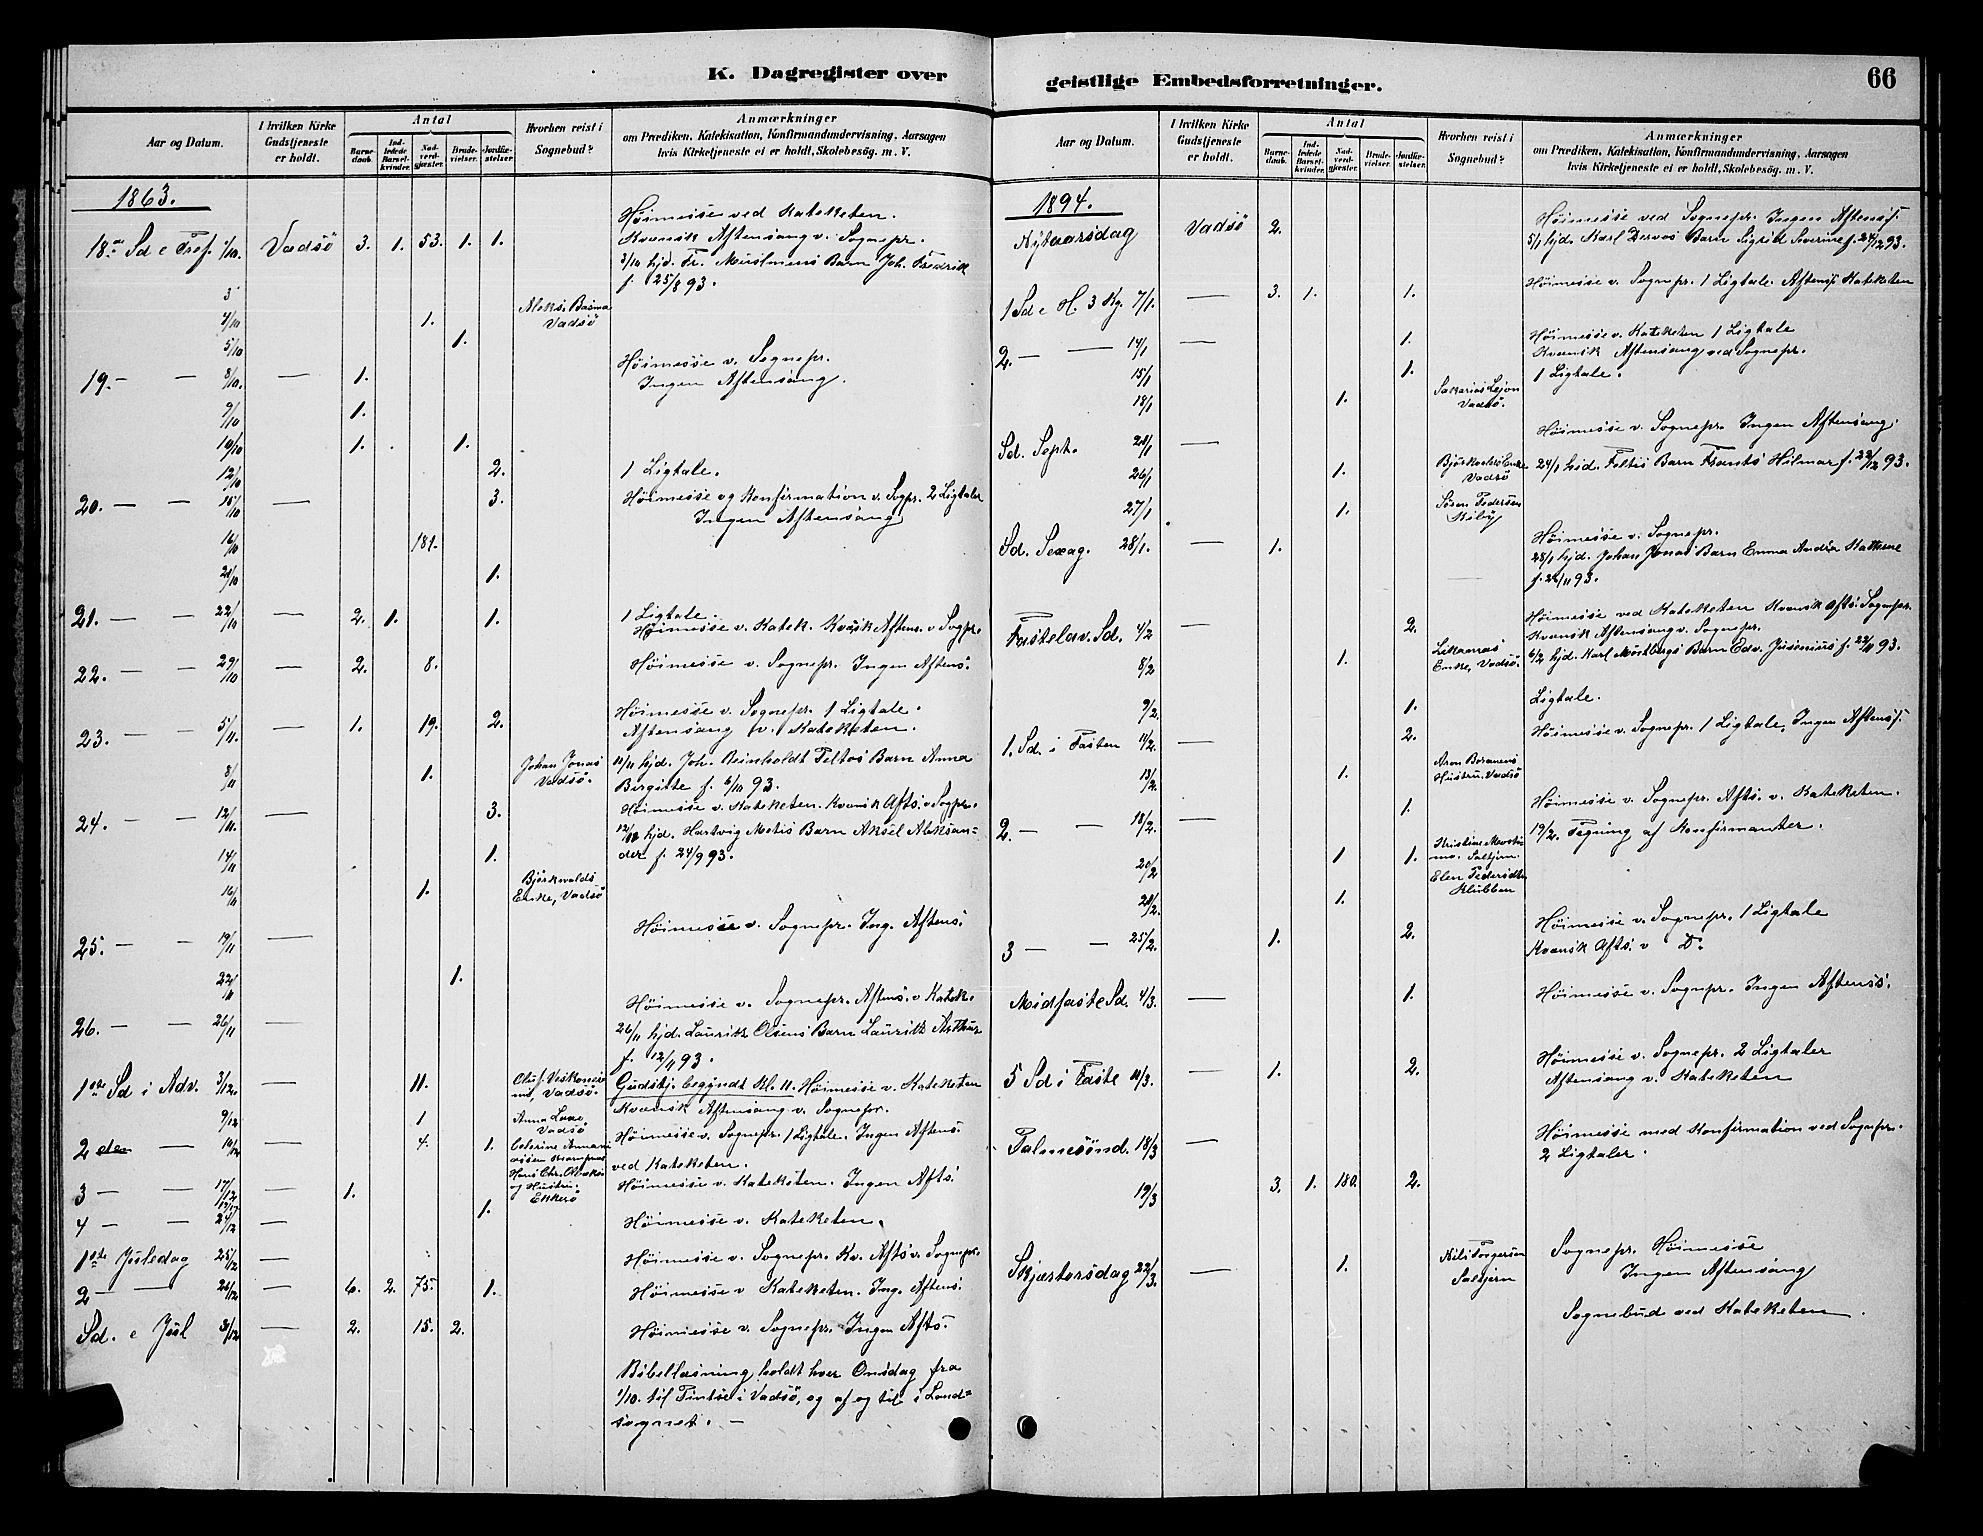 K. Dagregister over
Aar og Datum.
I hvilken Kirke Gudstjeneste er holdt.
Antal
Barnedaab.
Indledede Barselkvinder.
Nadverdgjæster.
Brudevielser.
Jordfæstelser.
Hvorhen reist i Sognebud?
Anmærkninger
om Prædiken, Katekisation, Konfirmandundervisning, Aarsagen
hvis Kirketjeneste ei er holdt, Skolebesøg. m. V.
1863.
Høimesse ved Kateketen.
18de Sd e Tref. 1/10. Vadsö 3. 1. 53. 1. 1. Kvænsk Aftensang v. Sognepr.
3/10 hjd. Fr. Muslmens Barn Joh. Fredrik
f. 25/8 93.
3
4/10 1. Vadsö
5/10 1.
Høimesse v. Sognepr.
19. — — 8/10. — 1. Ingen Aftensang.
9/10 1.
10/10 1. 1.
12/10 2. 1 Ligtale.
20. — — 15/10 — 3. Høimesse og Konfirmation v. Sogpr. 2 Ligtaler
Ingen Aftensang
16/10 181.
1.
21. — — 22/10 — 2. 1. 1. 1 Ligtale.
Høimesse v. Katek. Kvsk Aftens. v Sogpr.
22. — — 29/10 — 2. 8. Høimesse v. Sognepr. Ingen Aftens.
Høimesse v. Sognepr. 1 Ligtale.
23. — — 5/11. — 1. 19. 2. Aftensang v. Kateketen.
8/11 1. Johan Jonas Vadsö. hjd. Joh. Reinholdt Feltos Barn Anna
Birgitte f. 6/10 93.
24. — — 12/11. — 3. Høimesse v. Kateketen. Kvænsk Afts. v Sogpr.
hjd. Hartvig Matis Barn Aksel Aleksan-
14/11 1. der f. 24/9 93.
16/11 1. Björkvalds Enke, Vadsö
25. — — 19/11 — Høimesse v. Sognepr. Ing. Aftens.
22/11 1.
Høimesse v. Sognepr. Aftens. v Katek.
26. — — 26/11 — 26/11 hjd. Lauritz Olsens Barn Lauritz Arthur
f. 12/11 93.
1ste Sd i Adv. 3/12. — 11. Vadsö. Gudstj. begyndt Kl. 11. Høimesse v. Kateketen
Kvænsk Aftensang v. Sognepr.
9/12 1 Anna Vadsö
2den — 10/12 — 4. 1. Høimesse v. Sognepr. 1 Ligtale. Ingen Aftens.
ved Kateketen.
og Hustru. Ekkerö
3 — — 17/12 — 1. Høimesse v. Kateketen. Ingen Afts.
1.
4 — — 24/12 — Høimesse v. Kateketen.
1ste Juledag 25/12 — Høimesse v. Sognepr. Kv. Afts v. Sognepr.
2 — — 26/12 — 6. 2. 75. 1. Høimesse v Kateketen. Ing. Aftens.
Sd. e Jul 31/12 — 2. 15. 2. Høimesse v. Sognepr. Ingen Afts.
Bibellæsning holdt hver Onsdag fra
1/10. til Pintse i Vadsö, og af og til i Land-
sognet. —
geistlige Embedsforretninger.
66
Aar og Datum.
I hvilken Kirke Gudstjeneste er holdt.
Antal
Barnedaab.
Indledede Barselkvinder.
Nadverdgjæster.
Brudevielser.
Jordfæstelser.
Hvorhen reist i Sognebud?
Anmærkninger
om Prædiken, Katekisation, Konfirmandundervisning, Aarsagen
hvis Kirketjeneste ei er holdt, Skolebesøg. m. V.
1894.
Nytaarsdag Vadsö 2. Høimesse ved Sognepr. Ingen Aftens.
5/1 hjd. Karl Barn Sigrid Severine f. 24/12 93.
1 Sd e H. 3 Kg. 7/1. — 3. 1. 1. Høimesse v. Sognepr. 1 Ligtale. Aftens. Kateketen
2. — — 14/1 — 1. Høimesse v. Kateketen 1 Ligtale
Kvænsk Aftensang ved Sognepr.
15/1 1. 1 Ligtale.
18/1 1. Sakarias Vadsö.
Sd. Sept. — Høimesse v. Sognepr. Ingen Aftensang.
26/1 1. Enke Vadsö 24/1 hjd. Feltis Barn Frants Hilmar f. 22/12 93.
27/1 1. Sören Pedersen Kiby
Sd. Sexag. 28/1. — 1. Høimesse v. Sognepr.
28/1 hjd. Johan Jonas Barn Emma Andrea Kathrine
Fastelav. Sd. 4/2 — 2. Høimesse ved Kateketen Kvænsk Afts. Sognepr.
Kvænsk Aftensang v. Sognepr.
8/2 1. Enke, Vadsö. 6/2 hjd. Karl Barn Edv. f. 22/11 93.
9/2. 1. Ligtale.
1. Sd. i Fasten 11/2. — 2. Høimesse v. Sognepr. 1 Ligtale, Ingen Aftens.
13/2 1. Aron Hustru. Vadsö
2. — — 18/2. — 1. Høimesse v. Sognepr. Afts. v. Kateketen.
19/2. Tegning af Konfirmanter.
20/2 1 1. Kristine
1. Elen Klubben
3 — — 25/2. 1. 2. Høimesse v. Sognepr. 1 Ligtale
Kvænsk Afts. v Do
Midfaste Sd. 4/3. — 1. Høimesse v. Sognepr. Ingen Aftenss.
5 Sd i Faste 11/3. — 1. 2. Høimesse v. Sognepr. 2 Ligtaler
Aftensang v. Kateketen
Palmesönd. 18/3 — Høimesse med Konfirmation ved Sognepr.
2 Ligtaler.
19/3 3. 1. 180. 2.
Skjærtorsdag 22/3. — 1. Nils Torgersen Sognepr. Høimesse
Ingen Aftensang
Sognebud ved Kateketen.